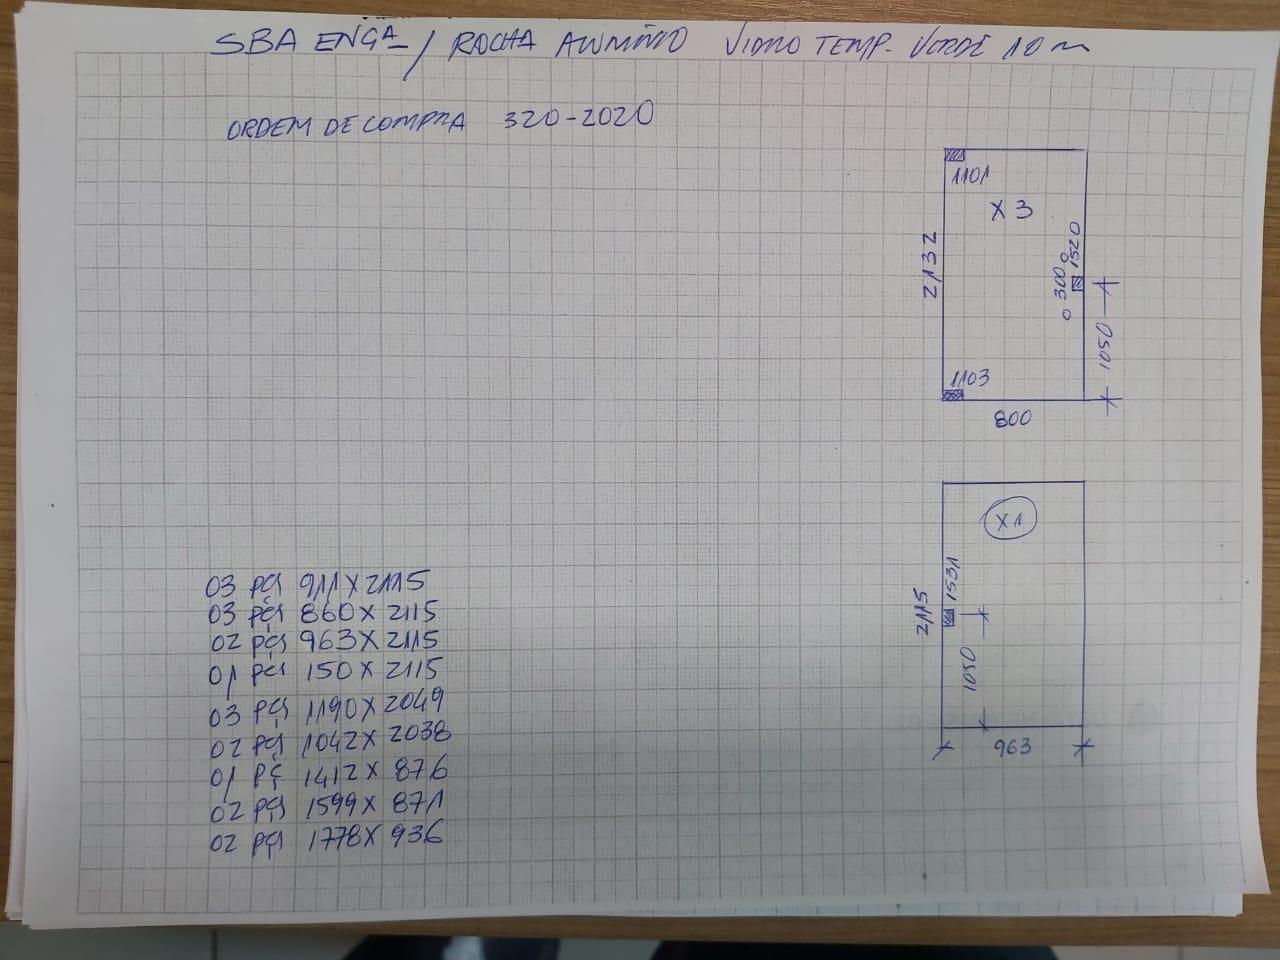 SBA ENGª / ROCHA ALUMÍNIO VIDRO TEMP. VERDE 10 m
ORDEM DE COMPRA 320-2020
1101
X 3
2132
1520
300
1050
1103
800
X1
1531
2115
1050
963
03 pçs 911 X 2115
03 pçs 860 X 2115
02 pçs 963 X 2115
01 pçs 150 X 2115
03 pçs 1190 X 2049
02 pçs 1042 X 2038
01 pç 1412 X 876
02 pçs 1599 X 871
02 pçs 1778 X 936